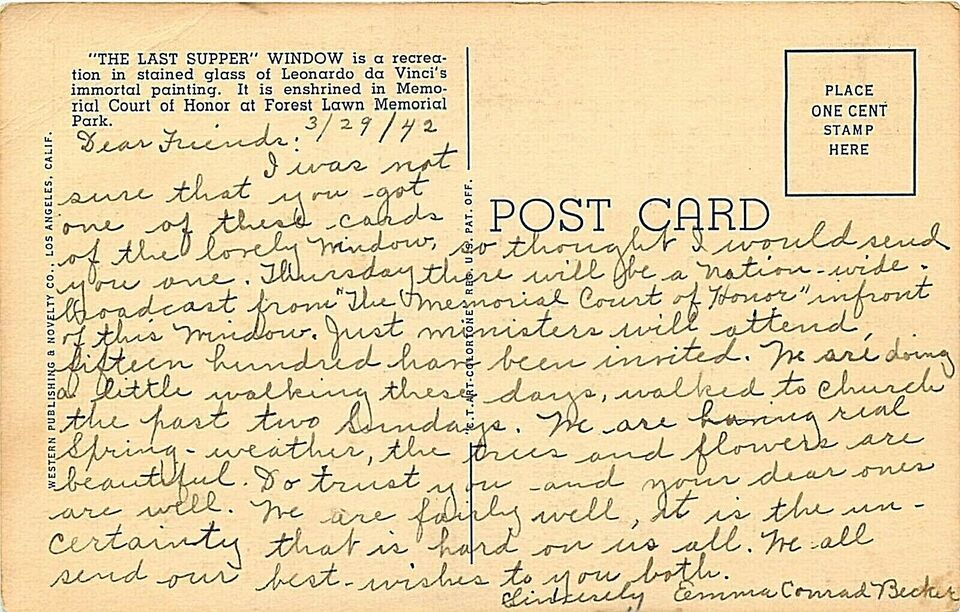 "THE LAST SUPPER" WINDOW is a recrea-
tion in stained glass of Leonardo da Vinci's
immortal painting. It is enshrined in Memo-
rial Court of Honor at Forest Lawn Memorial
Park.
PLACE
ONE CENT
STAMP
HERE
POST CARD
WESTERN PUBLISHING & NOVELTY CO., LOS ANGELES, CALIF.
"C.T. ART-COLORTONE" REG. U.S. PAT. OFF.
3/29/42
Dear Friends:
I was not
sure that you got
one of these cards
of the lovely Window, so thought I would send
you one. Thursday there will be a nation-wide
broadcast from "The Memorial Court of Honor" infront
of this Window. Just ministers will attend,
fifteen hundred have been invited. We are doing
a little walking these days, walked to church
the past two Sundays. We are having real
Spring-weather, the trees and flowers are
beautiful. Do trust you and your dear ones
are well. We are fairly well, it is the un-
certainty that is hard on us all. We all
send our best-wishes to you both.
Sincerely Emma Conrad Becker